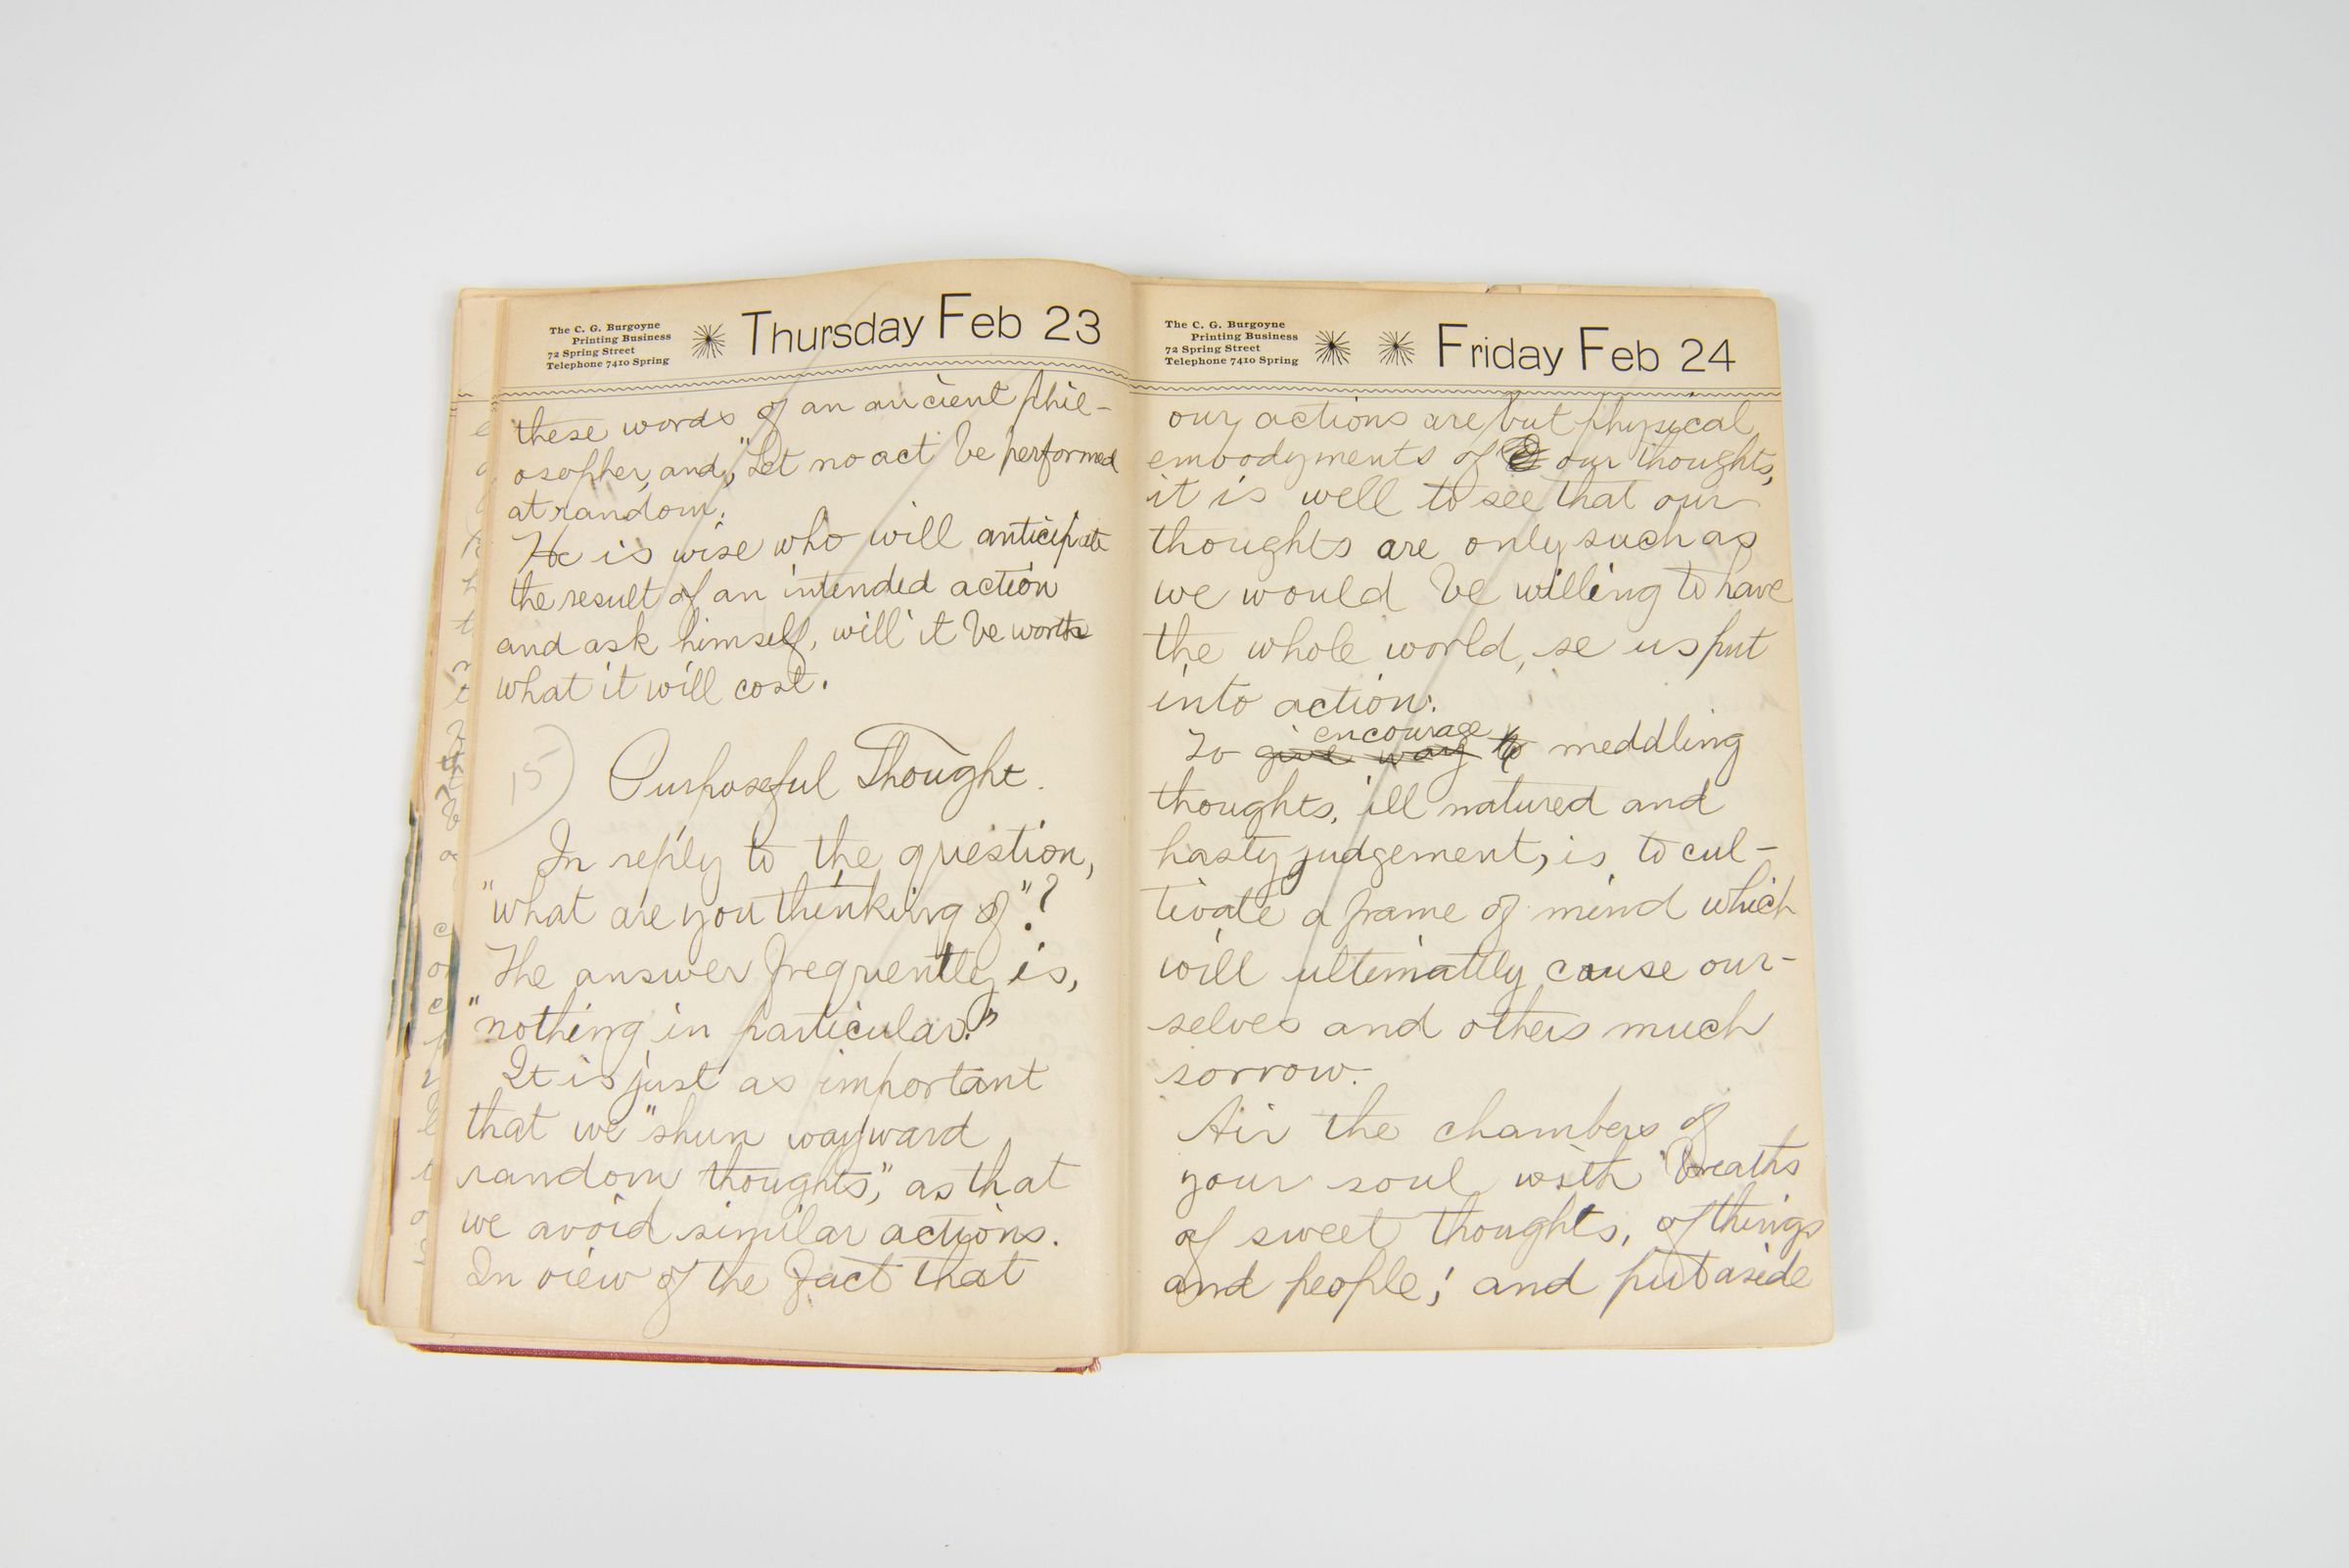 The C. G. Burgoyne
Printing Business
72 Spring Street
Telephone 7410 Spring
Thursday Feb 23
these words of an ancient phil-
osopher, and, "Let no act be performed
at random.
He is wise who will anticipate
the result of an intended action
and ask himself, will it be worth
what it will cost.
15)
Purposeful Thought.
In reply to the question,
"what are you thinking of"?
The answer frequently is,
"nothing in particular."
It is just as important
that we "shun wayward
random thoughts," as that
we avoid similar actions.
In view of the fact that
The C. G. Burgoyne
Printing Business
72 Spring Street
Telephone 7410 Spring
Friday Feb 24
our actions are but physical
embodyments of our thoughts,
it is well to see that our
thoughts are only such as
we would be willing to have
the whole world, se us put
into action.
encourage
To give way to meddling
thoughts, ill natured and
hasty judgement, is to cul-
tivate a frame of mind which
will ultimatly cause our-
selves and others much
sorrow.
Air the chambers of
your soul with breaths
of sweet thoughts, of things
and people; and put aside